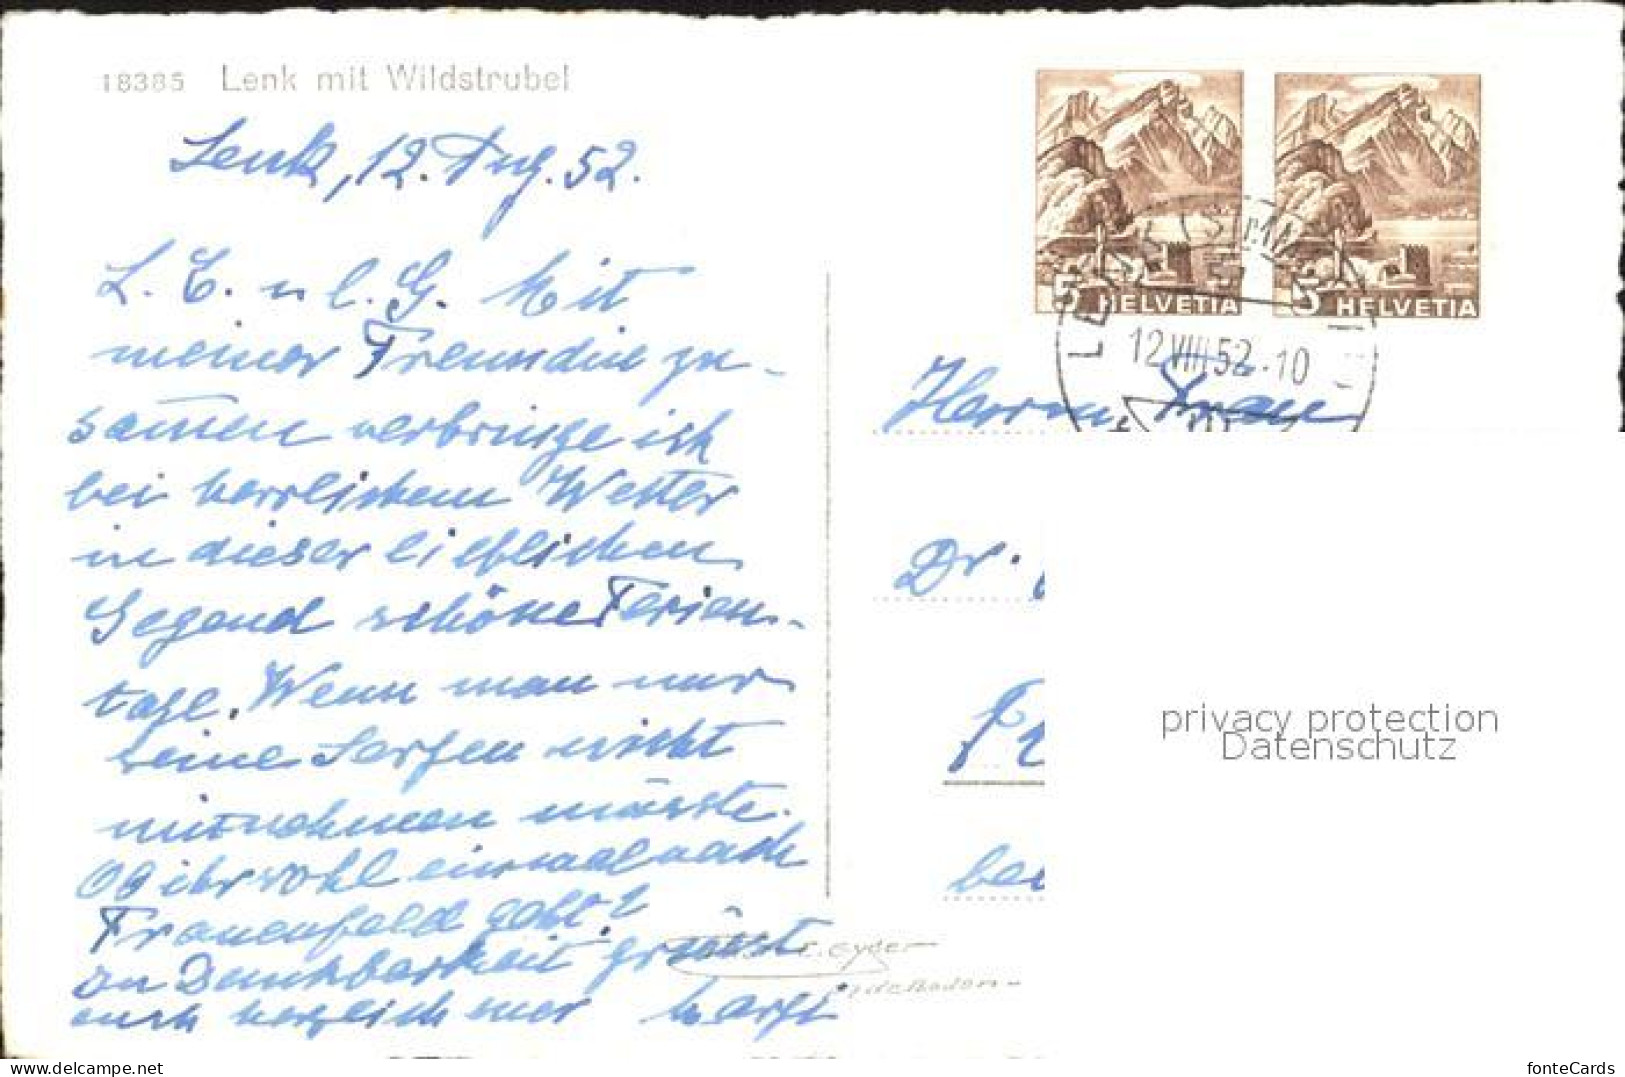 18385 Lenk mit Wildstrubel
Lenk, 12. Aug. 52.
L. E. u l. G. Mit
meiner Freundin zu-
samen verbringe ich
bei herrlichem Wetter
in dieser lieblichen
Gegend schöne Ferien-
tage. Wenn man nur
seine Sorgen nicht
mitnehmen müsste.
Ob ihr wohl einmal nach
Frauenfeld geht?
In Dankbarkeit grüsst
euch herzlich euer
5 HELVETIA
5 HELVETIA
LENK
12 VIII 52-10
Herrn, Frau
Dr.
Fr
bei
E. Gyger
Adelboden
privacy protection
Datenschutz
Delcampe.net
fonteCards